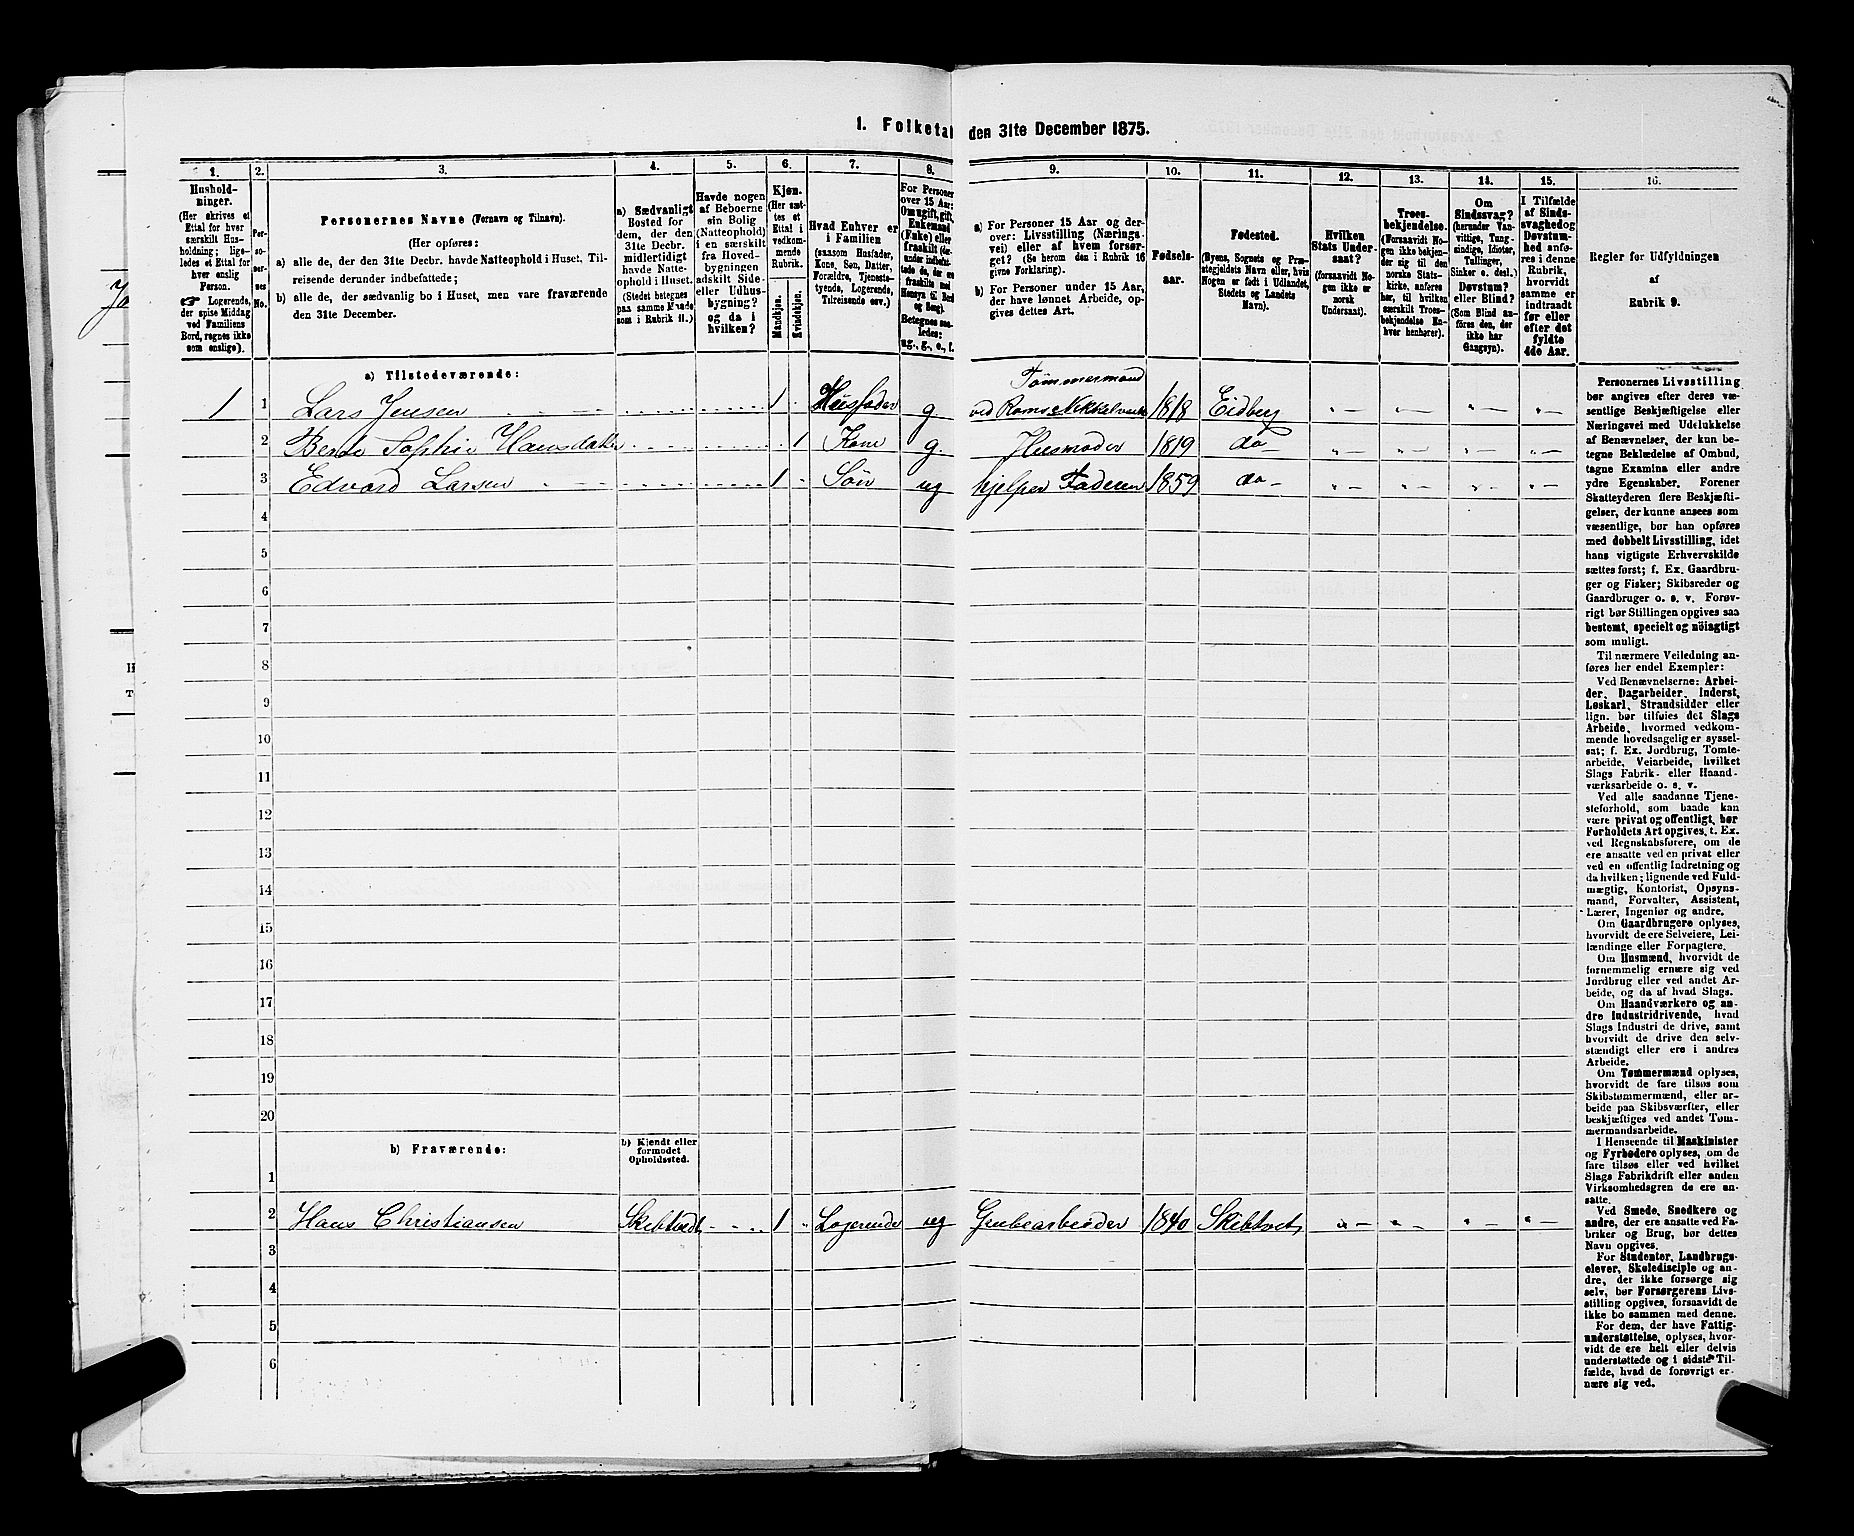 1. Folketal den 31te December 1875.
1. 2. 3. 4. 5. 6. 7. 8. 9. 10. 11. 12. 13. 14. 15. 16.
Hushold-
ninger.
(Her skrives et
Ettal for hver
særskilt Hus-
holdning; lige-
ledes et Ettal for
hver enslig
Person.
☞ Logerende,
der spise Middag
ved Familiens
Bord, regnes ikke
som enslige).
Per-
so-
ner-
nes
No.
Personernes Navne (Fornavn og Tilnavn).
(Her opføres:
a) alle de, der den 31te Decbr. havde Natteophold i Huset, Til-
reisende derunder indbefattede;
b) alle de, der sædvanlig bo i Huset, men vare fraværende
den 31te December.
a) Sædvanligt
Bosted for
dem, der den
31te Decbr.
midlertidigt
havde Natte-
ophold i Huset.
(Stedet betegnes
paa samme Maade
som i Rubrik 11.)
Havde nogen
af Beboerne
sin Bolig
(Natteophold)
i en særskilt
fra Hoved-
bygningen
adskilt Side-
eller Udhus-
bygning?
og da i
hvilken?
Kjøn.
(Her sæt-
tes et
Ettal i
vedkom-
mende
Rubrik.
Mandkjøn.
Kvindekjøn.
Hvad Enhver er
i Familien
(saasom Husfader,
Kone, Søn, Datter,
Forældre, Tjeneste-
tyende, Logerende,
Tilreisende osv.)
For Personer
over 15 Aar:
Om ugift, gift,
Enkemand
(Enke) eller
fraskilt
Betegnes saa-
ledes:
ug., g., e., f.
a) For Personer 15 Aar og der-
over: Livsstilling (Nærings-
vei) eller af hvem forsør-
get? (Se herom den i Rubrik 16
givne Forklaring).
b) For Personer under 15 Aar,
der have lønnet Arbeide, op-
gives dettes Art.
Fødsels-
aar.
Fødested.
(Byens, Sognets og Præ-
stegjeldets Navn eller, hvis
Nogen er født i Udlandet,
Stedets og Landets
Navn).
Hvilken
Stats Under-
saat?
(forsaavidt No-
gen ikke er
norsk
Undersaat).
Troes-
bekjendelse.
(Forsaavidt No-
gen ikke bekjen-
der sig til den
norske Stats-
kirke, anføres
her, til hvilken
særskilt Troes-
bekjendelse En-
hver henhører).
Om
Sindssvag?
(herunder Van-
vittige, Tung-
sindige, Idioter,
Tullinger,
Sinker o. desl.)
Døvstum?
eller Blind?
(Som Blind an-
føres den, der
ikke har
Gangsyn).
I Tilfælde
af Sinds-
svaghed og
Døvstum-
hed anfø-
res i denne
Rubrik,
hvorvidt
samme er
indtraadt
før eller
efter det
fyldte
4de Aar.
Regler for Udfyldningen
af
Rubrik 9.
a) Tilstedeværende:
Tømmermand
1 1 Lars Jensen 1 Husfader g ved Roms Nikkelverk 1818 Eidberg
2 Bente Sophie Hansdatter 1 Kone g. Husmoder 1819 do
3 Edvard Larsen 1 Søn ug hjelper Faderen 1859 do
4
5
6
7
8
9
10
11
12
13
14
15
16
17
18
19
20
b) Fraværende:
b) Kjendt eller
formodet
Opholdssted.
1
2 Hans Christiansen 1 Logerende ug Grubearbeider 1840 Skibtvet
3
4
5
6
Personernes Livsstilling
bør angives efter deres væ-
sentlige Beskjæftigelse eller
Næringsvei med Udelukkelse
af Benævnelser, der kun be-
tegne Beklædelse af Ombud,
tagne Examina eller andre
ydre Egenskaber. Forener
Skatteyderen flere Beskjæfti-
gelser, der kunne ansees som
væsentlige, bør han opføres
med dobbelt Livsstilling, idet
hans vigtigste Erhvervskilde
sættes først; f. Ex. Gaardbru-
ger og Fisker; Skibsreder og
Gaardbruger o. s. v. Forøv-
rigt bør Stillingen opgives saa
bestemt, specielt og nöiagtigt
som muligt.
Til nærmere Veiledning an-
føres her endel Exempler:
Ved Benævnelserne: Arbei-
der, Dagarbeider, Inderst,
Løskarl, Strandsidder eller
lign. bør tilføies det Slags
Arbeide, hvormed vedkom-
mende hovedsagelig er syssel-
sat; f. Ex. Jordbrug, Tomte-
arbeide, Veiarbeide, hvilket
Slags Fabrik- eller Haand-
værksarbeide o. s. v.
Ved alle saadanne Tjene-
steforhold, som baade kan
være privat og offentligt, bør
Forholdets Art opgives, t. Ex.
ved Regnskabsførere, om de
ere ansatte ved en privat eller
ved en offentlig Indretning og
da hvilken; lignende ved Fuld-
mægtig, Kontorist, Opsyns-
mand, Forvalter, Assistent,
Lærer, Ingeniør og andre.
Om Gaardbrugere oplyses,
hvorvidt de ere Selveiere, Lei-
lændinge eller Forpagtere.
Om Husmænd, hvorvidt de
fornemmelig ernære sig ved
Jordbrug eller ved andet Ar-
beide, og da af hvad Slags.
Om Haandværkere og an-
dre Industridrivende, hvad
Slags Industri de drive, samt
hvorvidt de drive den selv-
stændigt eller ere i andres
Arbeide.
Om Tømmermænd oplyses,
hvorvidt de fare tilsøs som
Skibstømmermænd, eller ar-
beide paa Skibsværfter, eller
beskjæftiges ved andet Tøm-
mermandsarbeide.
I Henseende til Maskinister
og Fyrbødere oplyses, om de
fare tilsøs eller ved hvilket
Slags Fabrikdrift eller anden
Virksomhedsgren de ere an-
satte.
Ved Smede, Snedkere og
andre, der ere ansatte ved Fa-
briker og Brug, bør dettes
Navn opgives.
For Studenter, Landbrugs-
elever, Skoledisciple og an-
dre, der ikke forsørge sig
selv, bør Forsørgerens Livs-
stilling opgives, forsaavidt de
ikke bo sammen med denne.
For dem, der have Fattig-
understøttelse, oplyses, hvor-
vidt de ere helt eller delvis
understøttede og i sidste Til-
fælde, hvad de forøvrigt er-
nære sig ved.